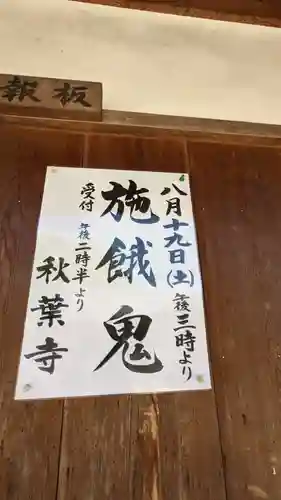 報板
八月十九日(土)午後三時より
施餓鬼
受付 午後二時半より
秋葉寺